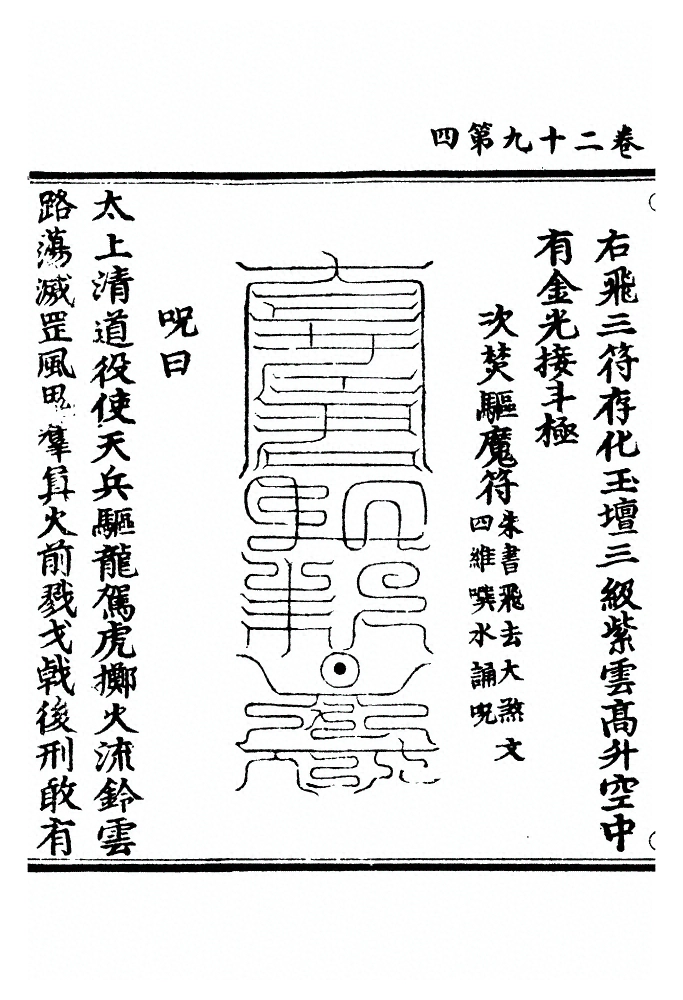 卷二十九第四
右飛三符存化玉壇三級紫雲高升空中
有金光接斗極
次焚驅魔符
朱書飛去大煞文
四維噀水誦呪
呪曰
太上清道役使天兵驅龍駕虎擲火流鈴雲
路蕩滅罡風羣火前戮戈戟後刑敢有